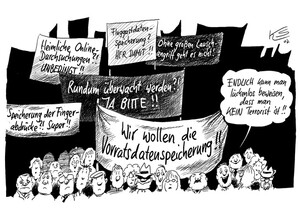 Heimliche Online-
Durchsuchungen?
UNBEDINGT !!
Fluggastdaten-
speicherung?
HER DAMIT !!
Ohne großen Lausch-
angriff geht es nicht!
Rundum überwacht werden?!
JA BITTE !!
Speicherung der Finger-
abdrücke?! Super!
Wir wollen die
Vorratsdatenspeicherung !!
ENDLICH kann man
lückenlos beweisen,
dass man
KEIN Terrorist ist !!